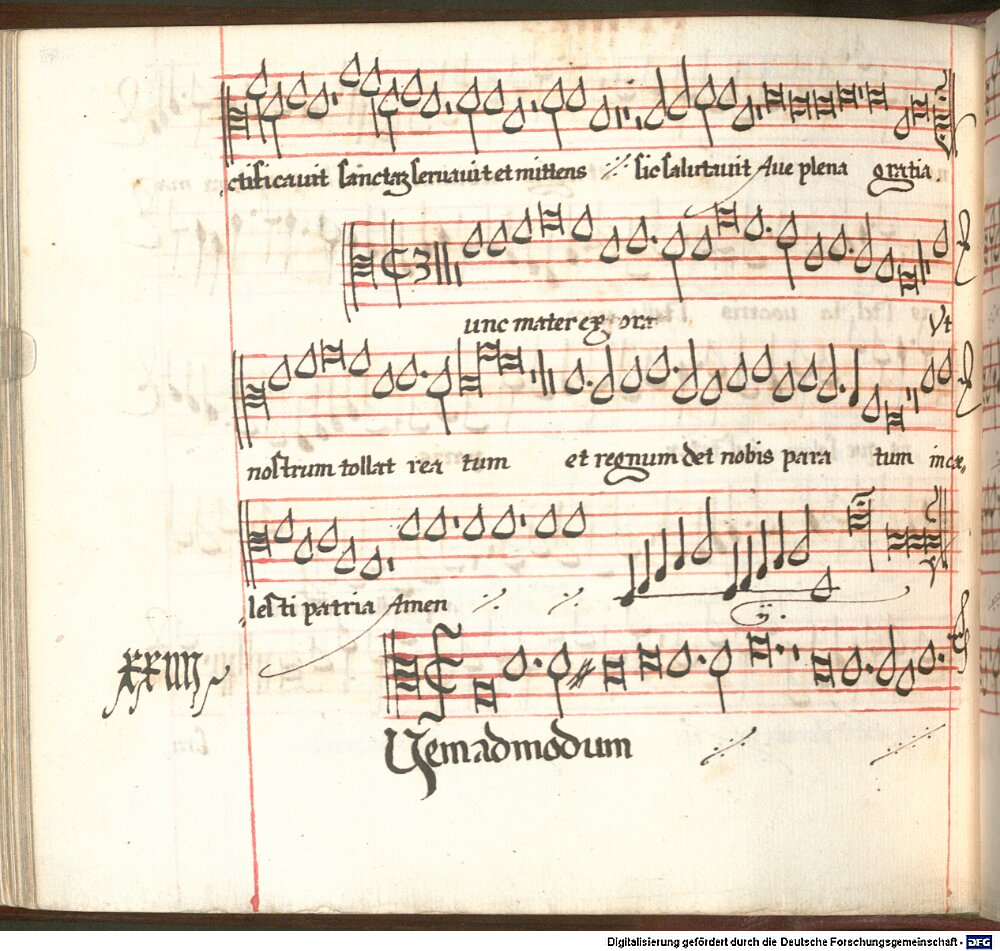 ctificavit sanctaȝ servavit et mittens ·//· sic salutavit Ave plena gratia.
unc mater exora Vt
nostrum tollat rea tum et regnum det nobis para tum in cæ„
„lesti patria Amen ·//· ·//· ij.
xxiiij
Uemadmodum ·//· ·//·
Digitalisierung gefördert durch die Deutsche Forschungsgemeinschaft - DFG